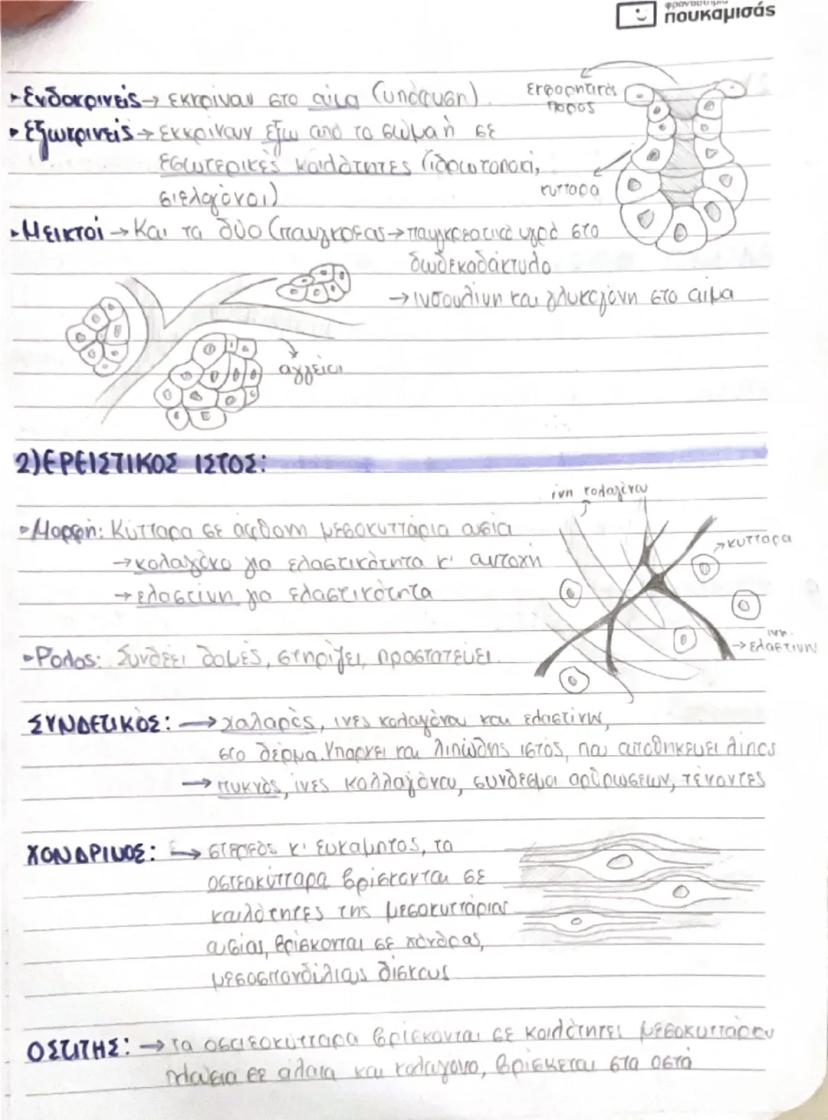 φροντιστήρια
πουκαμισάς
▸Ενδοκρινείς→ εκκρίνουν στο αίμα (υπόφυση)
▸Εξωκρινείς→ εκκρίνουν έξω από το σώμα ή σε
εσωτερικές κοιλότητες (ιδρωτοποιοί,
σιελογόνοι)
▸Μεικτοί → Και τα δύο (πάγκρεας→παγκρεατικό υγρό στο
δωδεκαδάκτυλο
→ ινσουλίνη και γλυκαγόνη στο αίμα
εκφορητικός
πόρος
κύτταρα
αγγείο
2) ΕΡΕΙΣΤΙΚΟΣ ΙΣΤΟΣ:
▸Μορφή: Κύτταρα σε άφθονη μεσοκυττάρια ουσία
→κολαγόνο για ελαστικότητα κ' αντοχή
→ελαστίνη για ελαστικότητα
▸Ρόλος: Συνδέει δομές, στηρίζει, προστατεύει
ίνη κολαγόνου
κύτταρα
ίνη
ελαστίνη
ΣΥΝΔΕΤΙΚΟΣ: → χαλαρός, ίνες κολαγόνου και ελαστίνη,
στο δέρμα. Υπάρχει και λιπώδης ιστός, που αποθηκεύει λίπος
→ πυκνός, ίνες κολλαγόνου, συνδέσμοι αρθρώσεων, τένοντες
ΧΟΝΔΡΙΝΟΣ: → στερεός κ' ευκαμπτος, τα
οστεοκύτταρα βρίσκονται σε
κοιλότητες της μεσοκυττάριας
ουσίας, βρίσκονται σε χόνδρους,
μεσοσπονδύλιους δίσκους
ΟΣΤΙΤΗΣ: → τα οστεοκύτταρα βρίσκονται σε κοιλότητες μεσοκυττάριου
πλούσια σε άλατα και κολαγόνο, βρίσκεται στα οστά